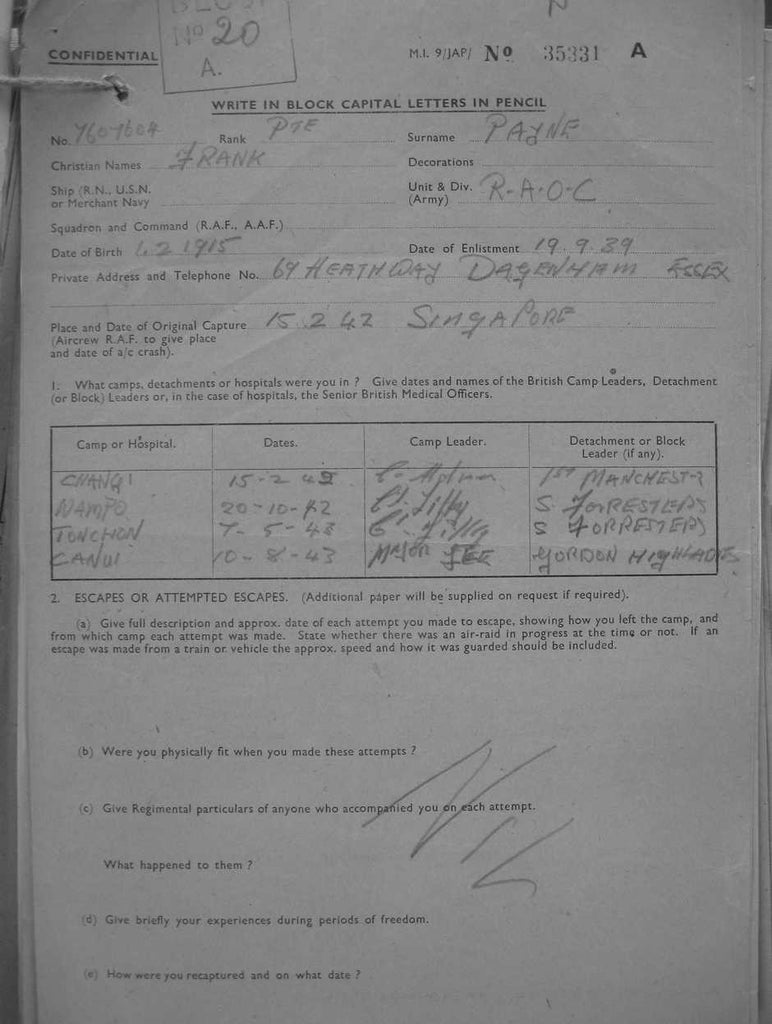 No 20
A.
CONFIDENTIAL
M.I. 9/JAP/ No 35331 A
WRITE IN BLOCK CAPITAL LETTERS IN PENCIL
No. 7607604 Rank PTE Surname PAYNE
Christian Names FRANK Decorations
Ship (R.N., U.S.N. or Merchant Navy
Unit & Div. (Army) R-A-O-C
Squadron and Command (R.A.F., A.A.F.)
Date of Birth 1.2 1915 Date of Enlistment 19.9.39
Private Address and Telephone No. 69 HEATHWAY DAGENHAM ESSEX
Place and Date of Original Capture 15.2 42 SINGAPORE
(Aircrew R.A.F. to give place
and date of a/c crash).
1. What camps, detachments or hospitals were you in ? Give dates and names of the British Camp Leaders, Detachment
(or Block) Leaders or, in the case of hospitals, the Senior British Medical Officers.
Camp or Hospital. Dates. Camp Leader. Detachment or Block Leader (if any).
CHANGI 15-2-42 1ST MANCHEST-R
NAMPO 20-10-42 S FORRESTERS
TONCHON 7-5-43 S FORRESTERS
CANUI 10-8-43 MAJOR LEE GORDON HIGHLADES
2. ESCAPES OR ATTEMPTED ESCAPES. (Additional paper will be supplied on request if required).
(a) Give full description and approx. date of each attempt you made to escape, showing how you left the camp, and
from which camp each attempt was made. State whether there was an air-raid in progress at the time or not. If an
escape was made from a train or vehicle the approx. speed and how it was guarded should be included.
(b) Were you physically fit when you made these attempts ?
(c) Give Regimental particulars of anyone who accompanied you on each attempt.
What happened to them ?
(d) Give briefly your experiences during periods of freedom.
(e) How were you recaptured and on what date ?